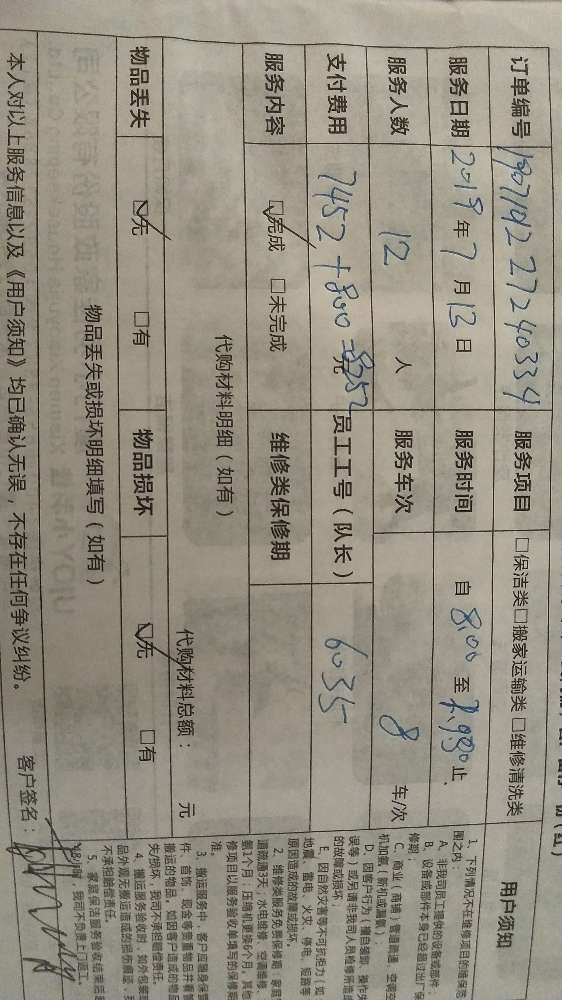 订单编号 服务项目 □保洁类□搬家运输类□维修清洗类
服务日期 2019年7月13日 服务时间 自 8:00 至 止
服务人数 12 人 服务车次 8 车/次
支付费用 7452+800=8252元 员工工号(队长) 6035
服务内容 ☑完成 □未完成 维修类保修期
代购材料明细(如有)
代购材料总额: 元
物品丢失 ☑无 □有 物品损坏 ☑无 □有
物品丢失或损坏明细填写(如有)
本人对以上服务信息以及《用户须知》均已确认无误,不存在任何争议纠纷。 客户签名:
用户须知
1、下列情况不在维修项目的维保范
围之内:
A、非我司员工提供的设备或部件
B、设备或部件本身已经超过出厂保
修期;
C、商业(商铺)管道疏通、空调空
机加氟(新机或漏氟)
D、因客户行为(擅自领卸、操作失
误等)或另请非我司人员检修所造成
的故障或损坏;
E、因自然灾害等不可抗拒力(如
地震、雷电、火灾、停电、短路等
原因造成的故障或损坏。
2、维修类服务免费保修期:家庭
道疏通3天;水电维修、空调维修、
氟1个月;压缩机更换6个月。其他
修项目以服务验收单填写的保修期
准。
3、搬运服务中,客户应随身保管
件、首饰、现金等贵重物品并看管
搬运的物品,如因客户造成的物品
失/损坏,我司不承担赔偿责任。
4、搬运服务验收时,如外包装或
品外观无搬运造成的损伤痕迹,我
不承担赔偿责任。
5、家庭保洁服务验收结束或超
48小时,我司不负责上门返工。